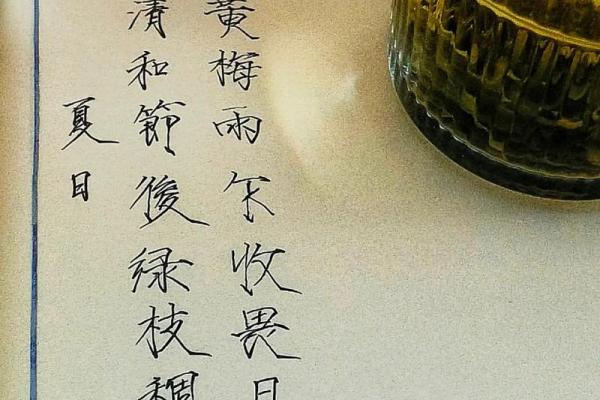 黃梅雨乍收畏日
清和節後緑枝稠
夏日